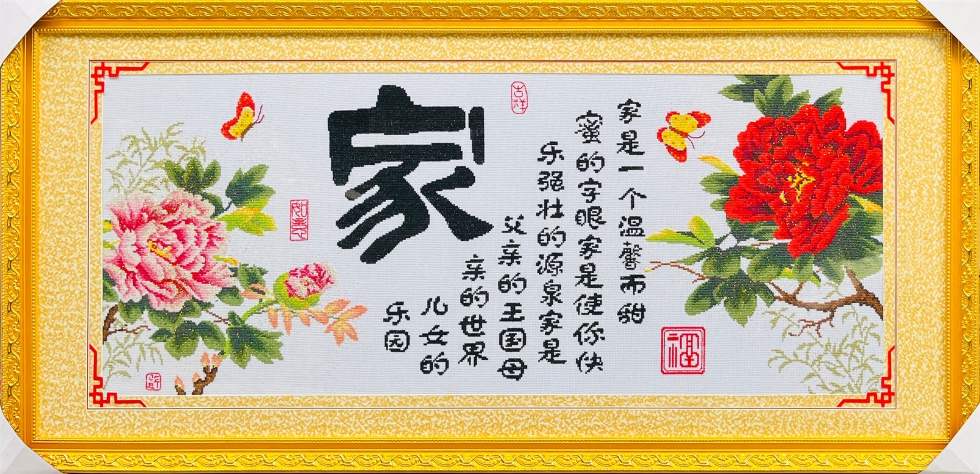 家
吉祥
家是一个温馨而甜
蜜的字眼家是使你快
乐强壮的源泉家是
父亲的王国母
亲的世界
儿女的
乐园